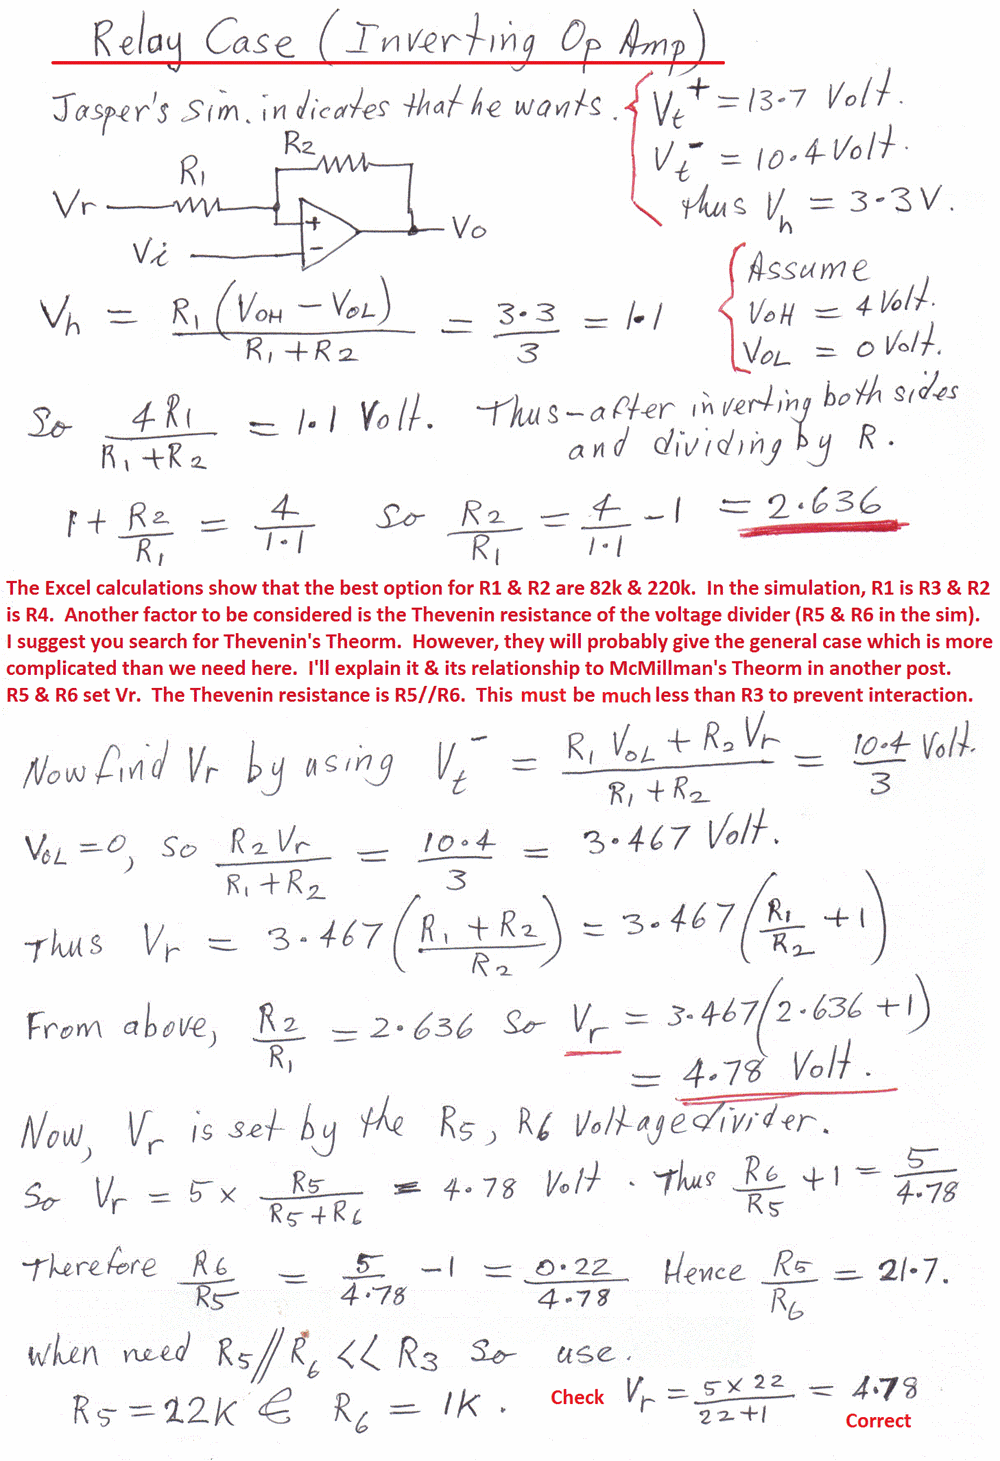 Relay Case (Inverting Op Amp)
Jasper's sim. indicates that he wants. { Vt+ = 13.7 Volt.
Vt- = 10.4 Volt.
thus Vh = 3.3 V.
R2
R1
Vr
+
Vo
Vi
-
{ Assume
VOH = 4 Volt.
VOL = 0 Volt.
Vh = R1 (VOH - VOL) / R1 + R2 = 3.3 / 3 = 1.1
So 4 R1 / R1 + R2 = 1.1 Volt. Thus - after inverting both sides
and dividing by R.
1 + R2 / R1 = 4 / 1.1 So R2 / R1 = 4 / 1.1 - 1 = 2.636
The Excel calculations show that the best option for R1 & R2 are 82k & 220k. In the simulation, R1 is R3 & R2
is R4. Another factor to be considered is the Thevenin resistance of the voltage divider (R5 & R6 in the sim).
I suggest you search for Thevenin's Theorm. However, they will probably give the general case which is more
complicated than we need here. I'll explain it & its relationship to McMillman's Theorm in another post.
R5 & R6 set Vr. The Thevenin resistance is R5//R6. This must be much less than R3 to prevent interaction.
Now find Vr by using Vt- = R1 VOL + R2 Vr / R1 + R2 = 10.4 / 3 Volt.
VOL = 0, so R2 Vr / R1 + R2 = 10.4 / 3 = 3.467 Volt.
Thus Vr = 3.467 (R1 + R2 / R2) = 3.467 (R1 / R2 + 1)
From above, R2 / R1 = 2.636 So Vr = 3.467 (2.636 + 1)
= 4.78 Volt.
Now, Vr is set by the R5, R6 Voltage divider.
So Vr = 5 x R5 / R5 + R6 = 4.78 Volt. Thus R6 / R5 + 1 = 5 / 4.78
Therefore R6 / R5 = 5 / 4.78 - 1 = 0.22 / 4.78 Hence R5 / R6 = 21.7.
when need R5 // R6 << R3 So use.
R5 = 22K & R6 = 1K. Check Vr = 5 x 22 / 22 + 1 = 4.78
Correct